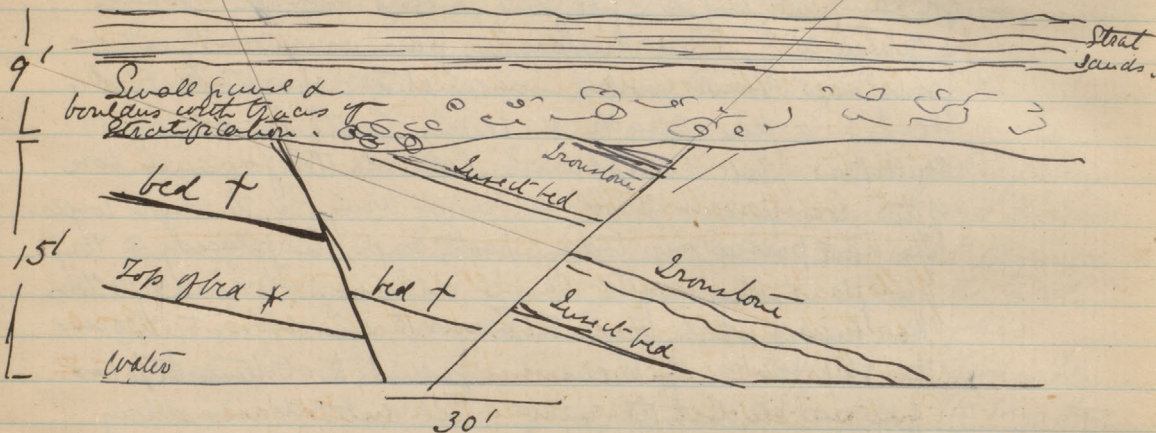 Strat
Sands.
9'
Small gravel &
boulders with traces of
Stratification.
Ironstone
Insect-bed
bed +
15'
Top of bed *
bed +
Ironstone
Insect-bed
Water
30'